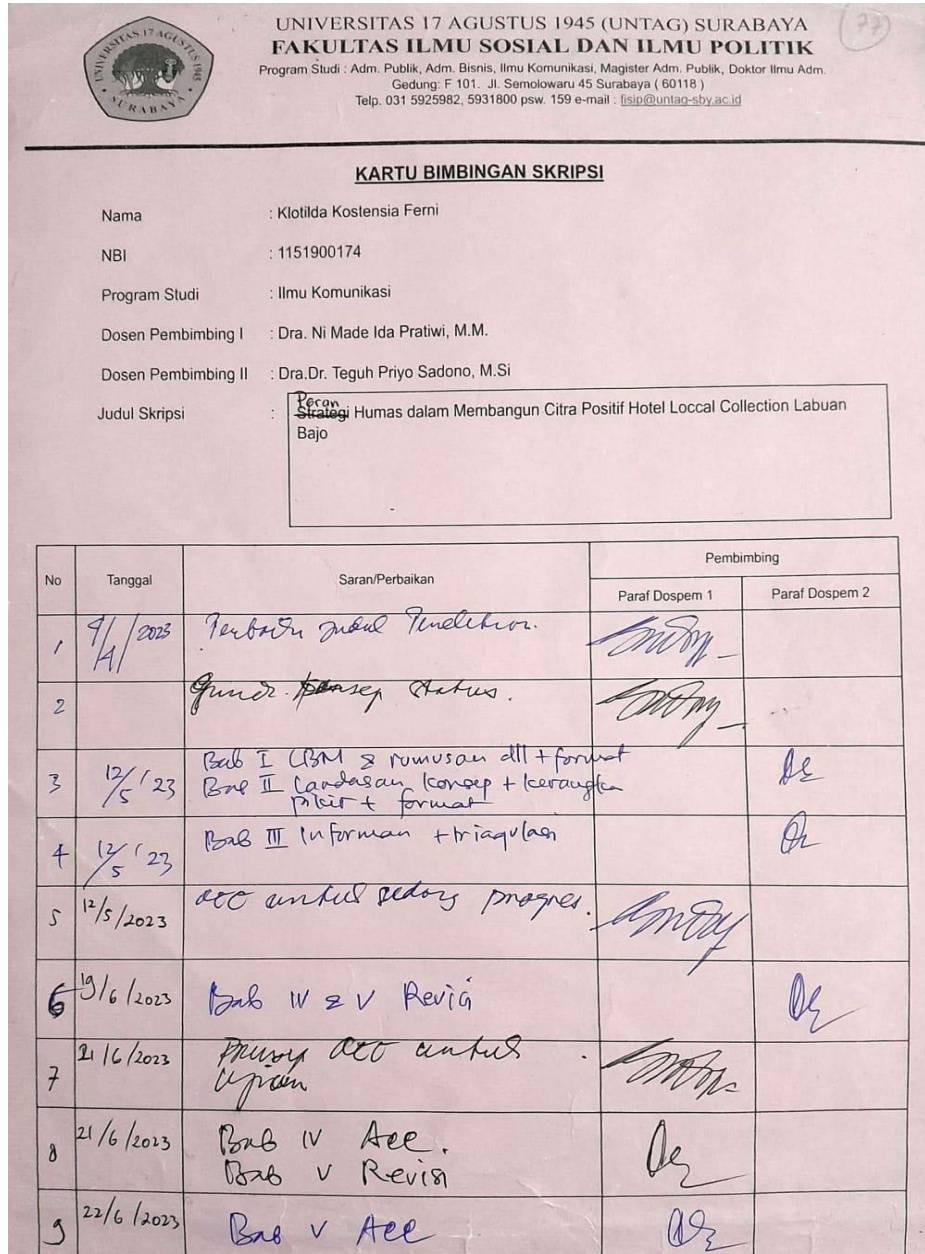 UNIVERSITAS 17 AGUSTUS 1945 (UNTAG) SURABAYA
FAKULTAS ILMU SOSIAL DAN ILMU POLITIK
Program Studi : Adm. Publik, Adm. Bisnis, Ilmu Komunikasi, Magister Adm. Publik, Doktor Ilmu Adm.
Gedung: F 101. Jl. Semolowaru 45 Surabaya ( 60118 )
Telp. 031 5925982, 5931800 psw. 159 e-mail : fisip@untag-sby.ac.id
UNIVERSITAS 17 AGUSTUS 1945
SURABAYA
KARTU BIMBINGAN SKRIPSI
Nama : Klotilda Kostensia Ferni
NBI : 1151900174
Program Studi : Ilmu Komunikasi
Dosen Pembimbing I : Dra. Ni Made Ida Pratiwi, M.M.
Dosen Pembimbing II : Dra.Dr. Teguh Priyo Sadono, M.Si
Peran
Judul Skripsi : Strategi Humas dalam Membangun Citra Positif Hotel Loccal Collection Labuan
Bajo
No Tanggal Saran/Perbaikan Pembimbing
Paraf Dospem 1 Paraf Dospem 2
1 2023
2
3 12/5 '23 Bab I LBM & rumusan dll + format
Bab II Landasan konsep + kerangka
pikir + format
4 12/5 '23 Bab III Informan + triagulasi
5 12/5/2023 acc untuk progres.
6 19/6/2023 Bab IV & V Revisi
7 21/6/2023 acc untuk
ujian
8 21/6/2023 Bab IV Acc.
Bab V Revisi
9 22/6/2023 Bab V Acc